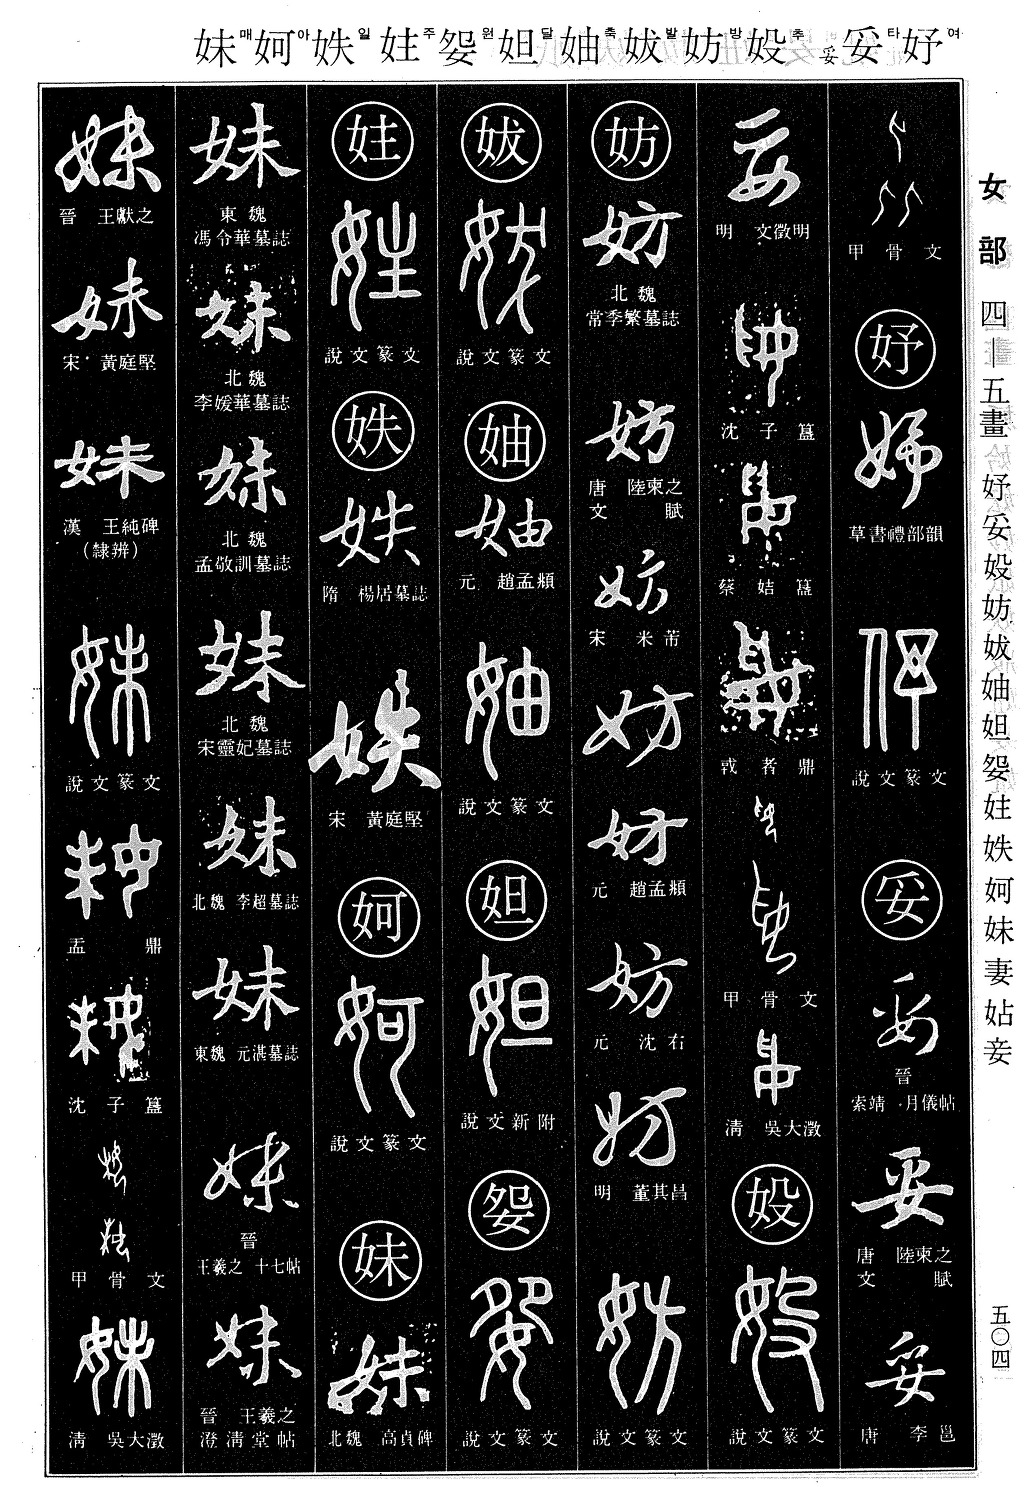 妹매妸아妷일妵주妴원妲달妯축妭발妨방㚫추妥妥타妤여
女部 四—五畫 妤妥㚫妨妭妯妲妴妵妷妸妹妻姑妾
五〇四
甲骨文
妤
草書禮部韻
說文篆文
妥
晉
索靖 月儀帖
唐 陸柬之
文賦
唐 李邕
明 文徵明
沈子簋
蔡姞簋
㦰者鼎
甲骨文
清 吳大澂
㚫
說文篆文
妨
北魏
常季繁墓誌
唐 陸柬之
文賦
宋 米芾
元 趙孟頫
元 沈右
明 董其昌
說文篆文
妭
說文篆文
妯
元 趙孟頫
說文篆文
妲
說文新附
妴
說文篆文
妵
說文篆文
妷
隋 楊居墓誌
宋 黃庭堅
妸
說文篆文
妹
北魏 高貞碑
東魏
馮令華墓誌
北魏
李媛華墓誌
北魏
孟敬訓墓誌
北魏
宋靈妃墓誌
北魏 李超墓誌
東魏 元湛墓誌
晉
王羲之 十七帖
晉 王羲之
澄清堂帖
晉 王獻之
宋 黃庭堅
漢 王純碑
(隸辨)
說文篆文
盂鼎
沈子簋
甲骨文
清 吳大澂